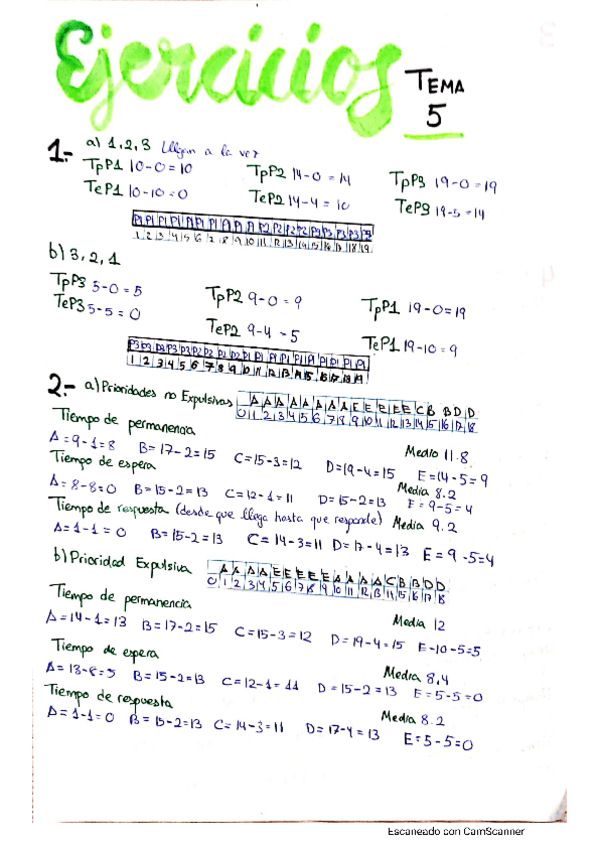 Ejercicios TEMA 5
1.- a) 1,2,3 llegan a la vez
TpP1 10-0=10 TpP2 14-0=14 TpP3 19-0=19
TeP1 10-10=0 TeP2 14-4=10 TeP3 19-5=14
P1 P1 P1 P1 P1 P1 P1 P1 P1 P1 P2 P2 P2 P2 P3 P3 P3 P3 P3
1 2 3 4 5 6 7 8 9 10 11 12 13 14 15 16 17 18 19
b) 3, 2, 1
TpP3 5-0=5 TpP2 9-0=9 TpP1 19-0=19
TeP3 5-5=0 TeP2 9-4=5 TeP1 19-10=9
P3 P3 P3 P3 P3 P2 P2 P2 P2 P1 P1 P1 P1 P1 P1 P1 P1 P1 P1
1 2 3 4 5 6 7 8 9 10 11 12 13 14 15 16 17 18 19
2.- a) Prioridades no Expulsivas A A A A A A A A E E E E E C B B D D
0 1 2 3 4 5 6 7 8 9 10 11 12 13 14 15 16 17 18
Tiempo de permanencia Media 11.8
A=9-1=8 B=17-2=15 C=15-3=12 D=19-4=15 E=14-5=9
Tiempo de espera Media 8.2
A=8-8=0 B=15-2=13 C=12-1=11 D=15-2=13 E=9-5=4
Tiempo de respuesta (desde que llega hasta que responde) Media 9.2
A=1-1=0 B=15-2=13 C=14-3=11 D=17-4=13 E=9-5=4
b) Prioridad Expulsiva A A A A E E E E E A A A A C B B D D
0 1 2 3 4 5 6 7 8 9 10 11 12 13 14 15 16 17 18
Tiempo de permanencia Media 12
A=14-1=13 B=17-2=15 C=15-3=12 D=19-4=15 E-10-5=5
Tiempo de espera Media 8.4
A=13-8=5 B=15-2=13 C=12-1=11 D=15-2=13 E=5-5=0
Tiempo de respuesta Media 8.2
A=1-1=0 B=15-2=13 C=14-3=11 D=17-4=13 E=5-5=0
Escaneado con CamScanner